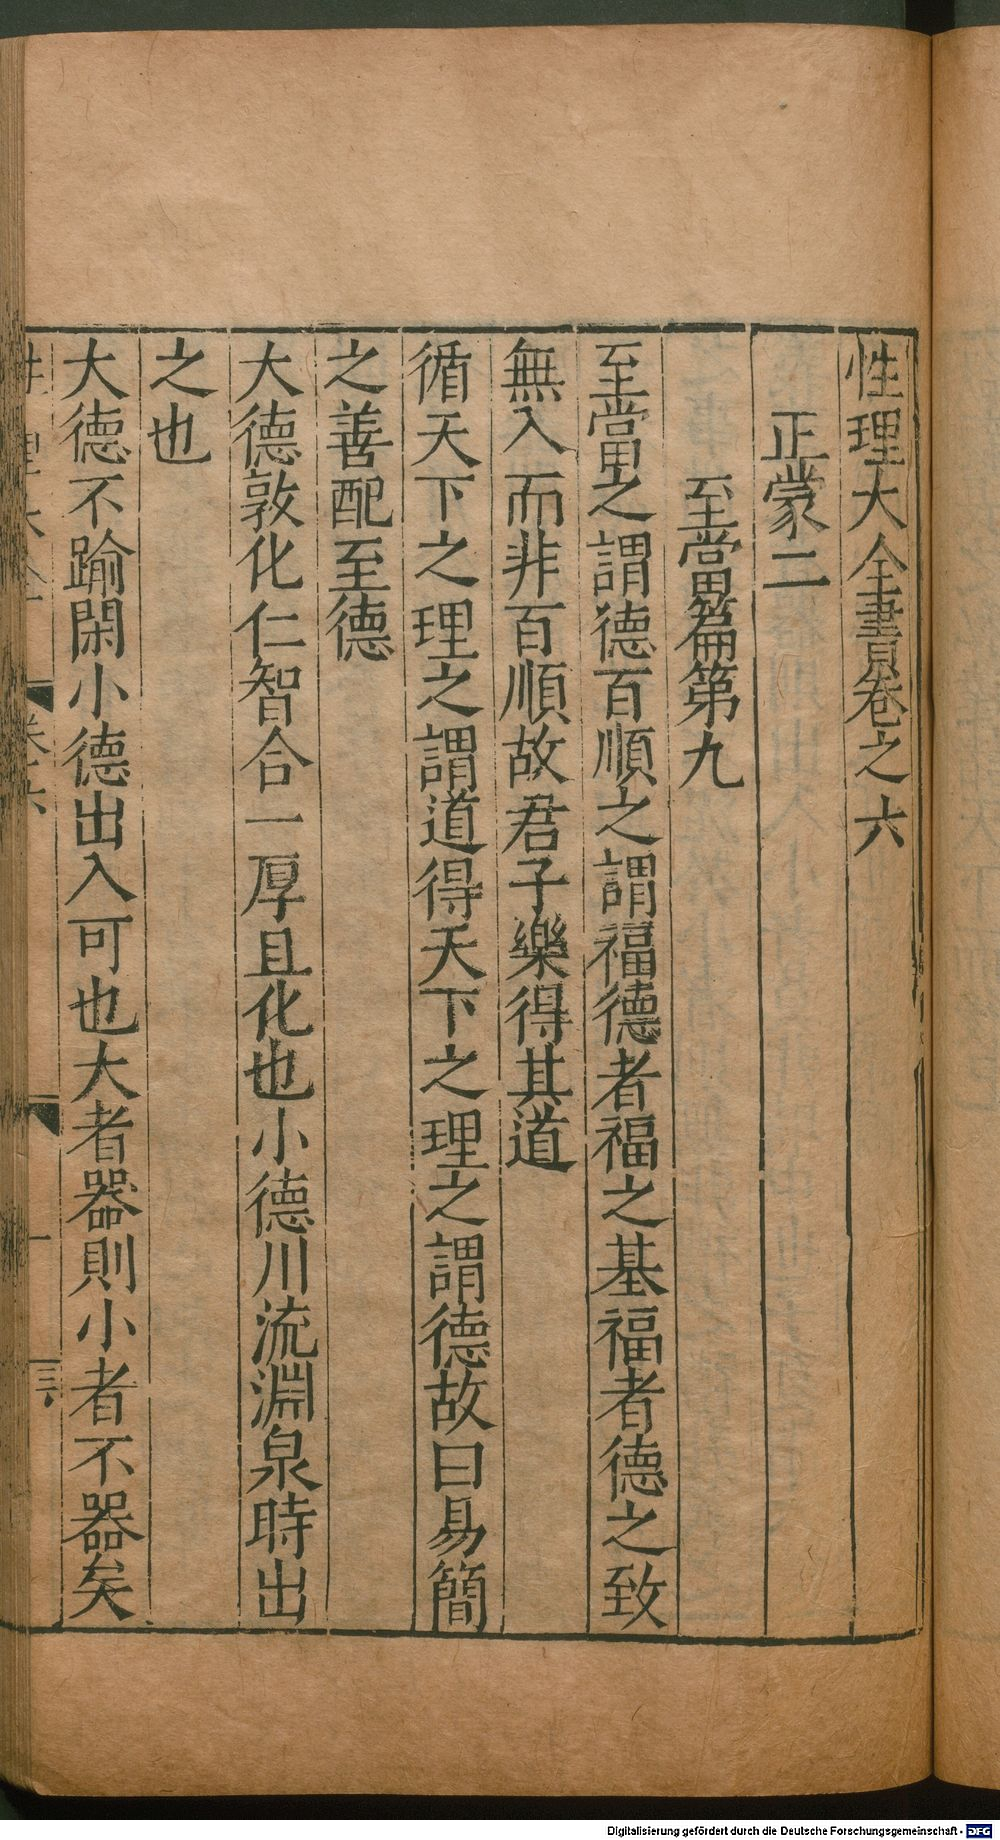 性理大全書卷之六
正蒙二
至當篇第九
至當之謂德百順之謂福德者福之基福者德之致
無入而非百順故君子樂得其道
循天下之理之謂道得天下之理之謂德故曰易簡
之善配至德
大德敦化仁智合一厚且化也小德川流淵泉時出
之也
大德不踰閑小德出入可也大者器則小者不器矣
Digitalisierung gefördert durch die Deutsche Forschungsgemeinschaft - DFG